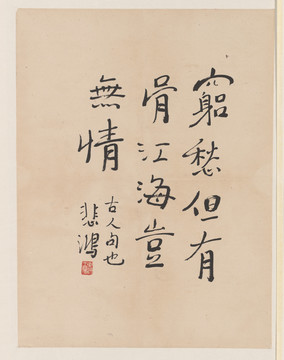 窮愁但有
骨江海豈
無情
古人句也
悲鴻